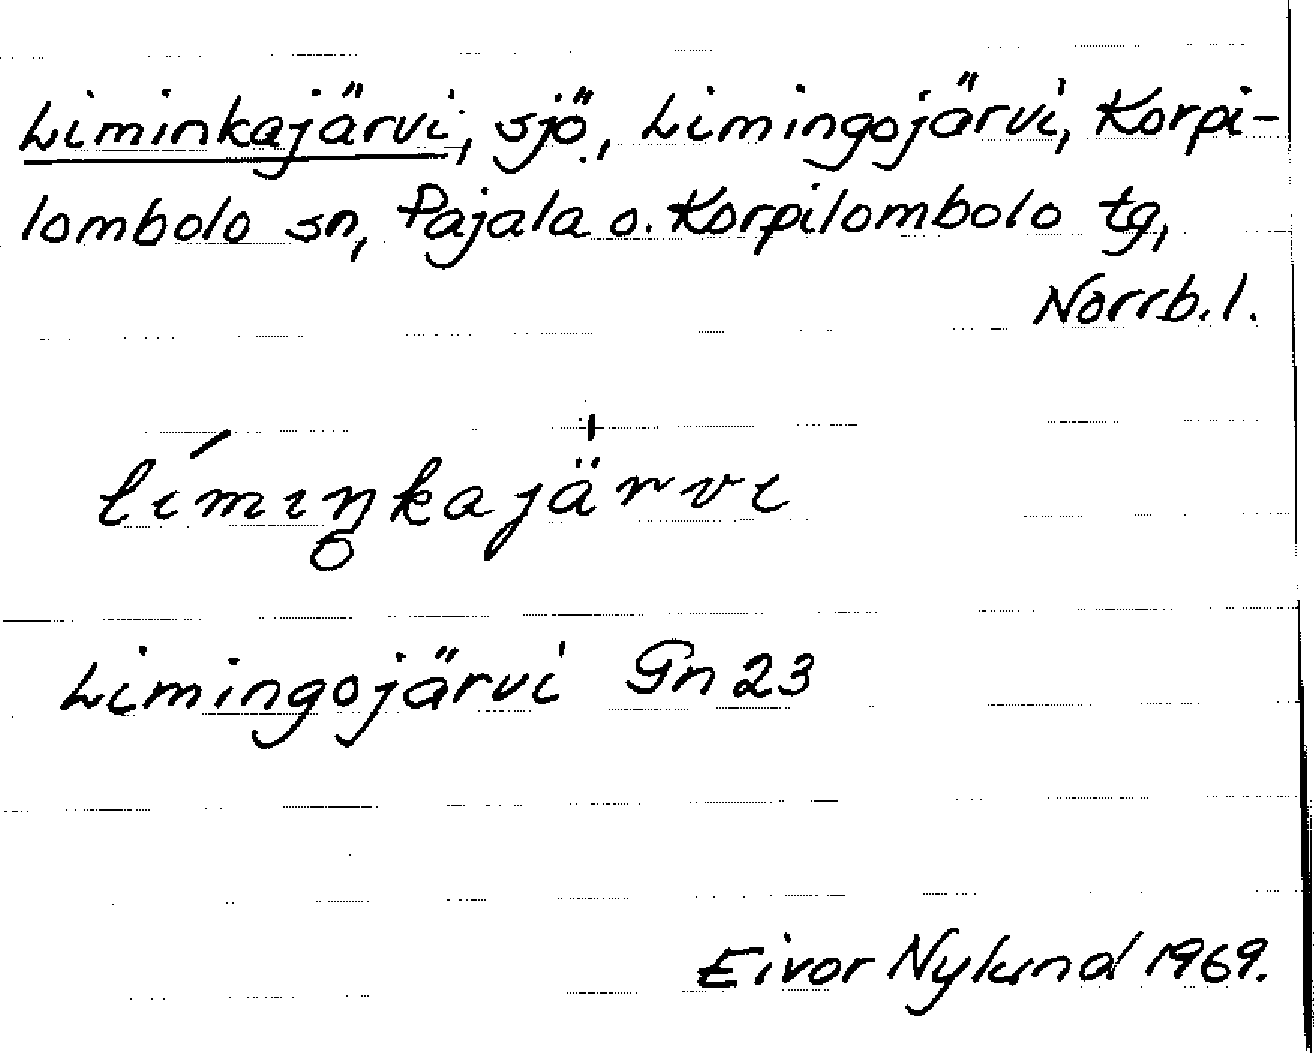 Liminkajärvi, sjö, Limingojärvi, Korpi-
lombolo sn, Pajala o. Korpilombolo tg,
Norrb. l.
límiŋ̥kajärvi
Limingojärvi Gn 23
Eivor Nylund 1969.